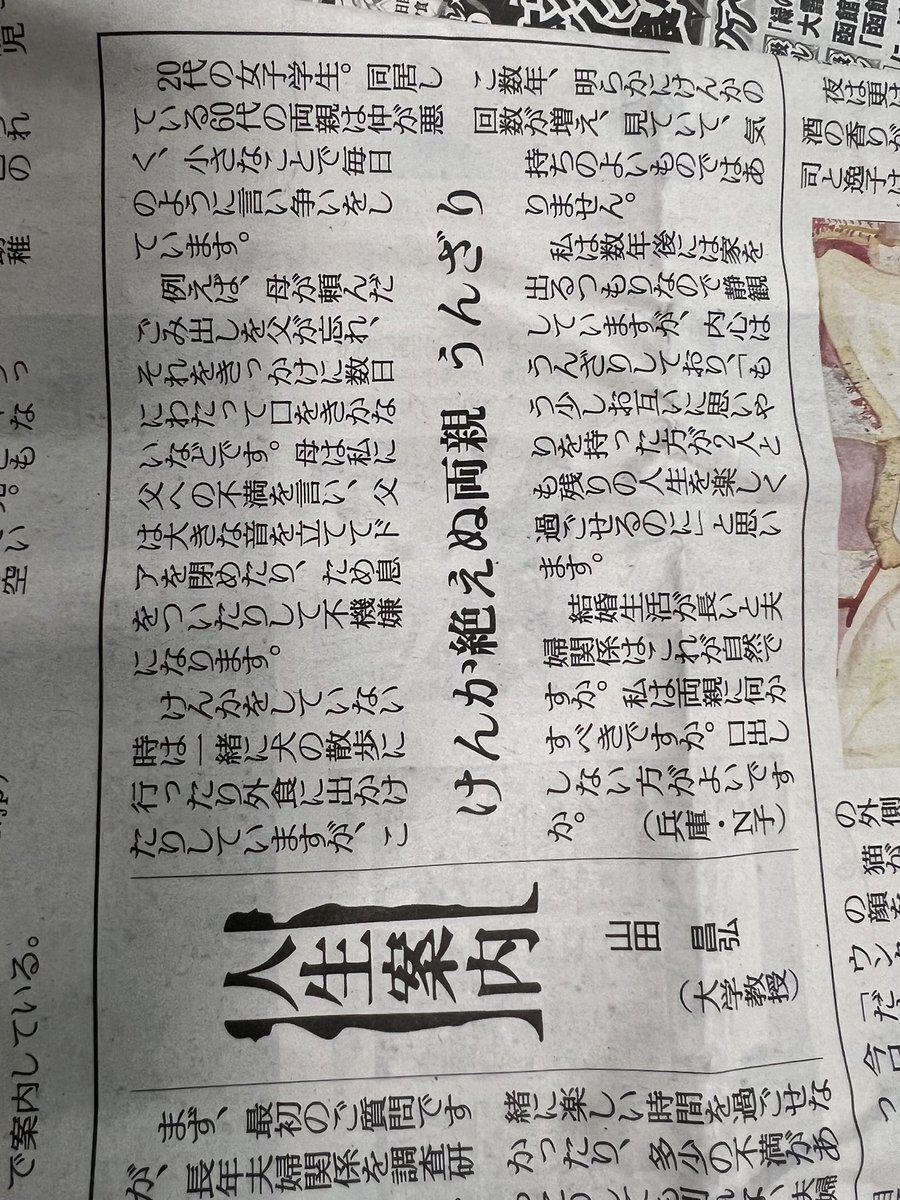 20代の女子学生。同居し
ている60代の両親は仲が悪
く、小さなことで毎日
のように言い争いをし
ています。
例えば、母が頼んだ
ごみ出しを父が忘れ、
それをきっかけに数日
にわたって口をきかな
いなどです。母は私に
父への不満を言い、父
は大きな音を立ててド
アを閉めたり、ため息
をついたりして不機嫌
になります。
けんかをしていない
時は一緒に犬の散歩に
行ったり外食に出かけ
たりしていますが、こ
けんか絶えぬ両親 うんざり
こ数年、明らかにけんかの
回数が増え、見ていて、気
持ちのよいものではあ
りません。
私は数年後には家を
出るつもりなので静観
していますが、内心は
うんざりしており、「も
う少しお互いに思いや
りを持った方が2人と
も残りの人生を楽しく
過ごせるのに」と思い
ます。
結婚生活が長いと夫
婦関係は、これが自然で
すか。私は両親に何か
すべきですか。口出し
しない方がよいです
か。 (兵庫・N子)
人生案内
山田 昌弘
(大学教授)
まず、最初のご質問です
が、長年夫婦関係を調査研
緒に楽しい時間を過ごせな
かったり、多少の不満があ
で案内している。
酒の香りが
司と逸子は
の外側
猫が
の顔を